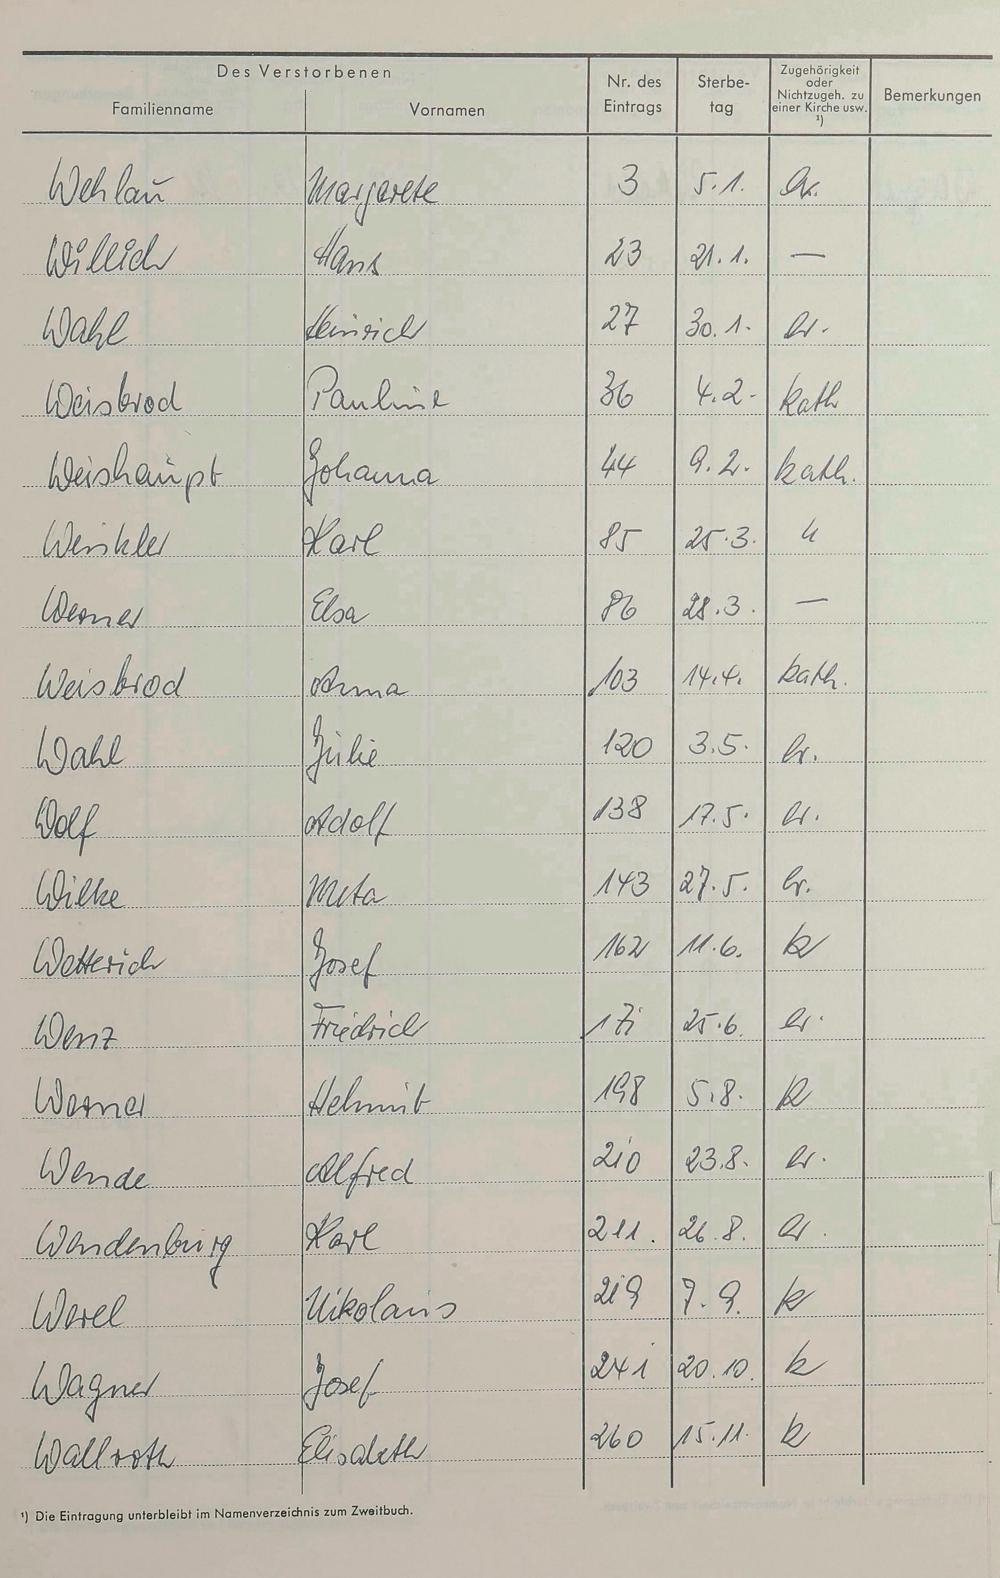 Des Verstorbenen
Familienname Vornamen Nr. des Eintrags Sterbe- tag Zugehörigkeit oder Nichtzugeh. zu einer Kirche usw. ¹) Bemerkungen
Wehlau Margarete 3 5.1. ev.
Willich Hans 23 21.1. —
Wahl Heinrich 27 30.1. ev.
Weisbrod Pauline 36 4.2. kath
Weishaupt Johanna 44 9.2. kath.
Winkler Karl 85 25.3. "
Werner Elsa 86 28.3. —
Weisbrod Anna 103 14.4. kath.
Wahl Julie 120 3.5. ev.
Wolf Adolf 138 17.5. ev.
Wilke Meta 143 27.5. ev.
Wetterich Josef 162 11.6. k
Wenz Friedrich 171 25.6. ev.
Werner Helmut 198 5.8. k
Wende Alfred 210 23.8. ev.
Wendenburg Karl 211. 26.8. ev.
Werel Nikolaus 219 7.9. k
Wagner Josef 241 20.10. k
Wallroth Elisabeth 260 15.11. k
¹) Die Eintragung unterbleibt im Namenverzeichnis zum Zweitbuch.